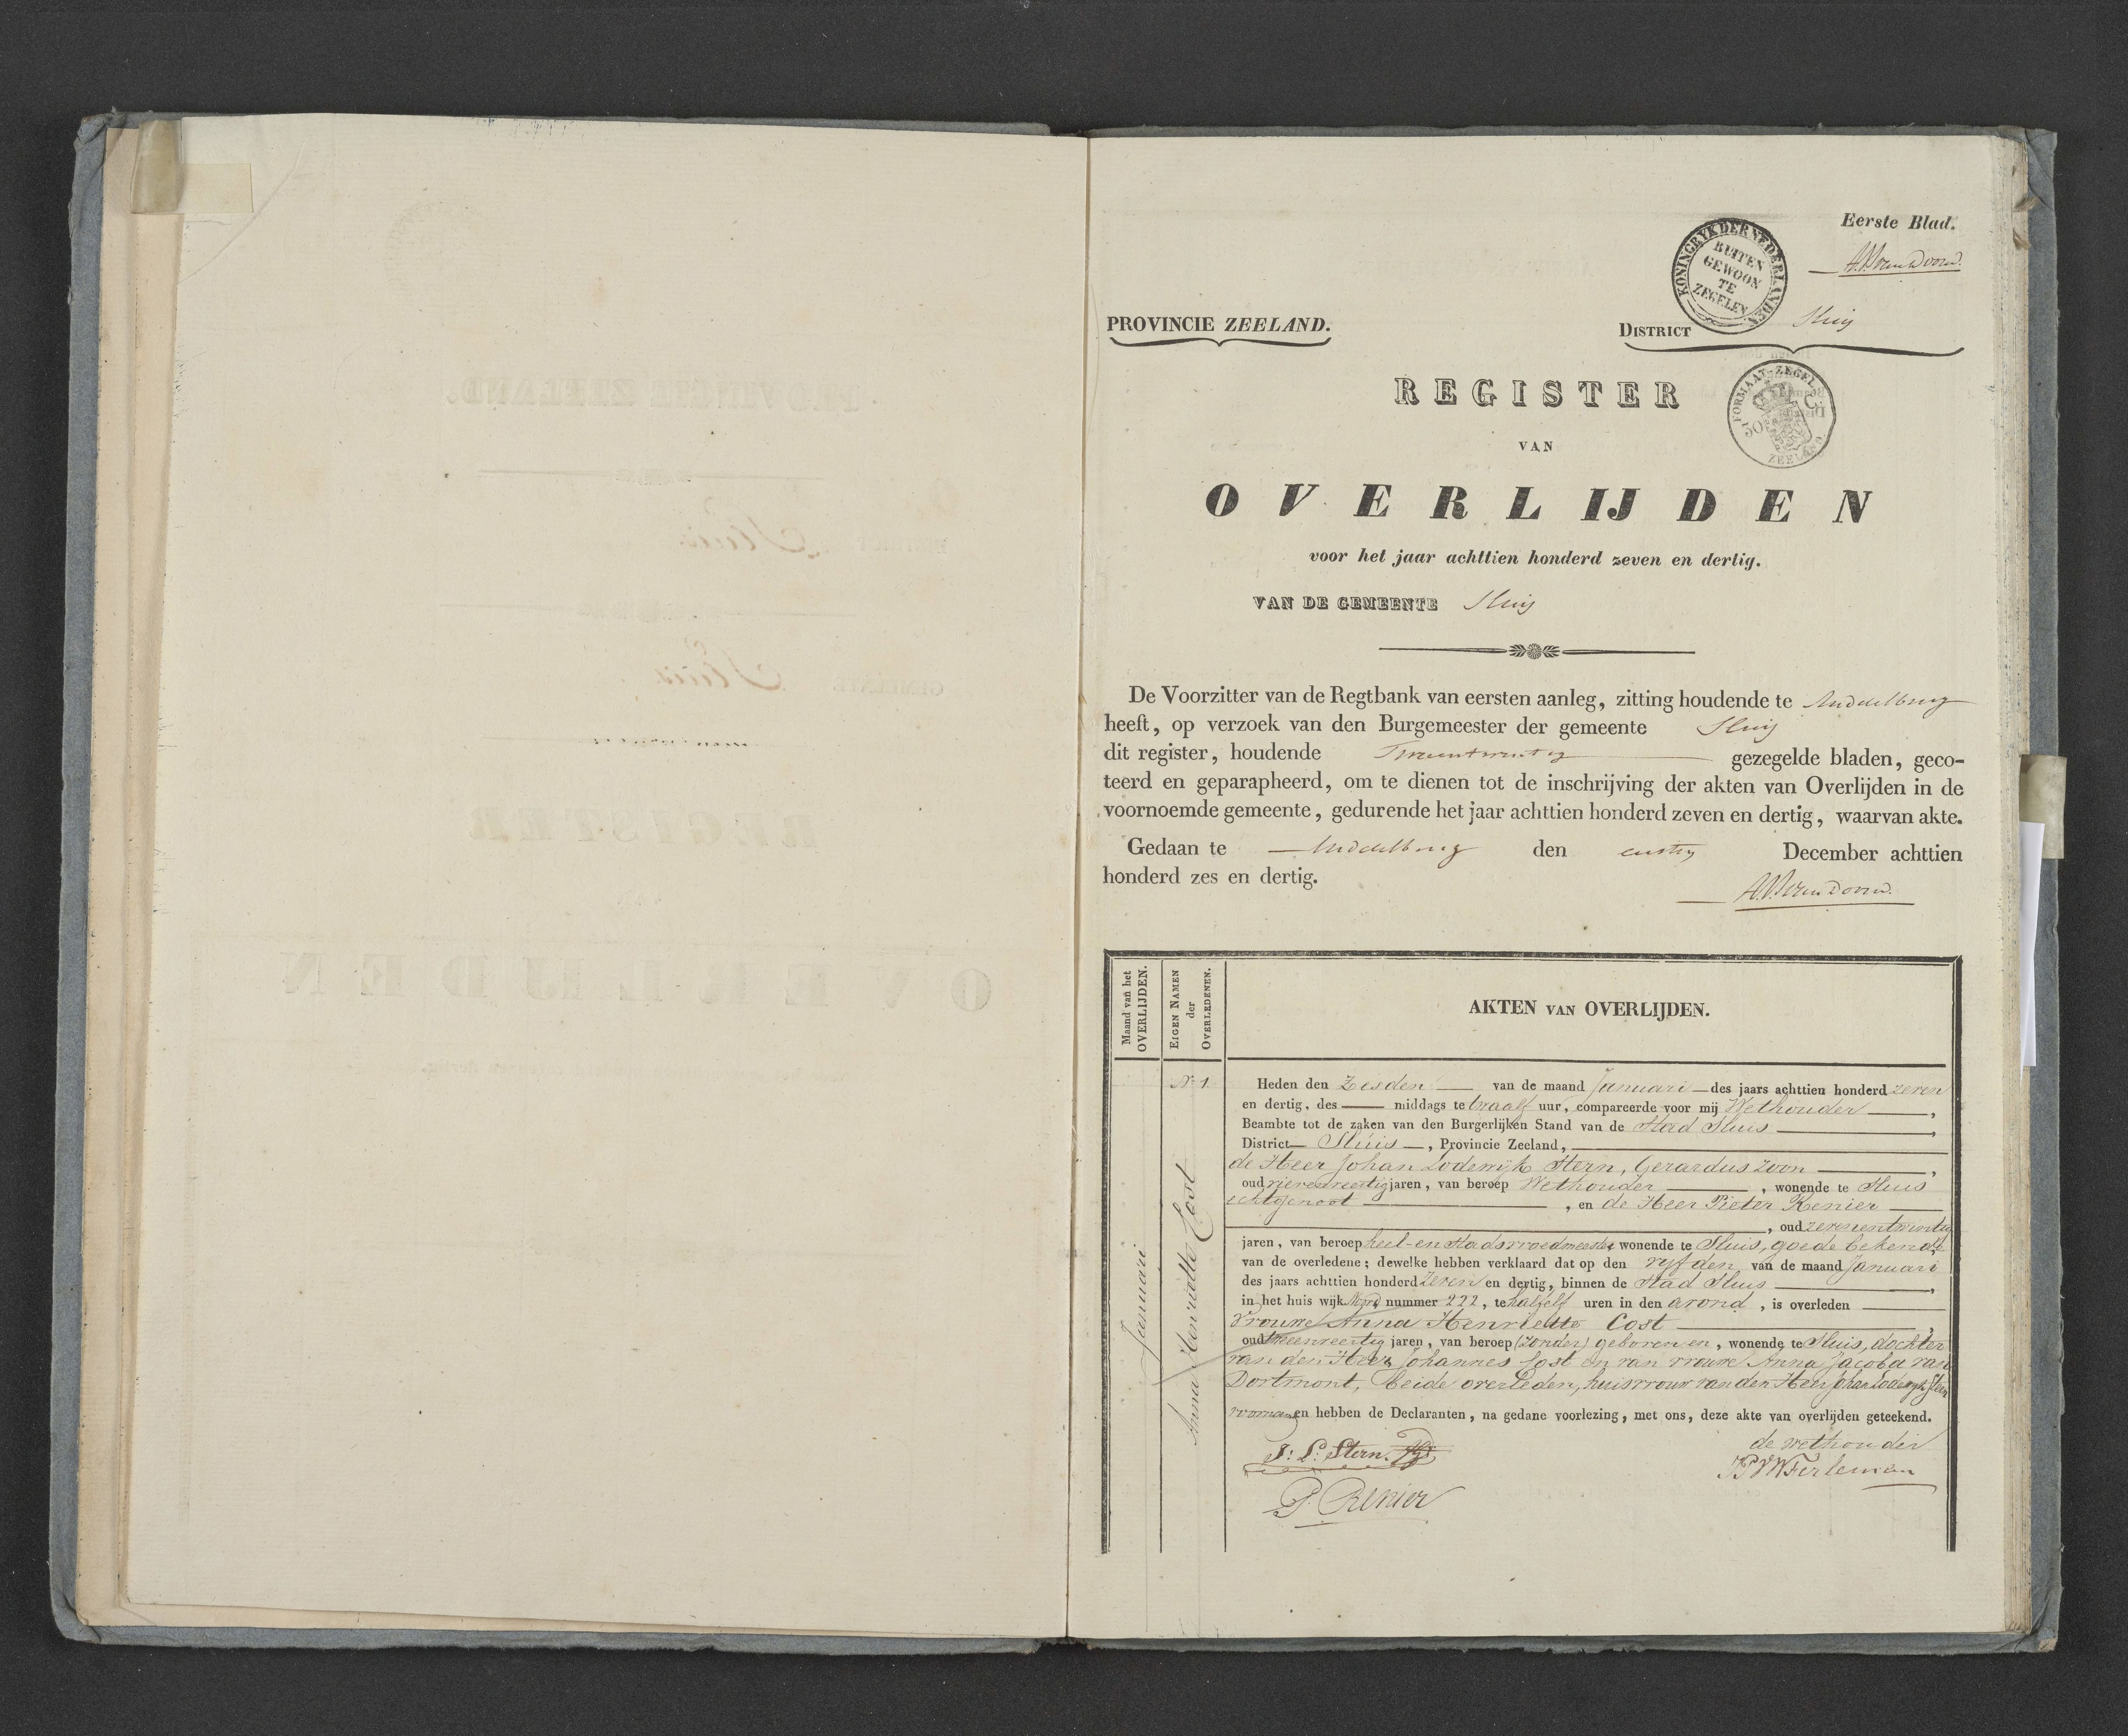 Eerste Blad.
KONINGRYK DER NEDERLANDEN
BUITEN
GEWOON
TE
ZEGELEN
PROVINCIE ZEELAND.
DISTRICT Sluis
FORMAAT-ZEGEL
50 C.
ZEELAND
REGISTER
VAN
OVERLIJDEN
voor het jaar achttien honderd zeven en dertig.
VAN DE GEMEENTE Sluis
De Voorzitter van de Regtbank van eersten aanleg, zitting houdende te Middelburg
heeft, op verzoek van den Burgemeester der gemeente Sluis
dit register, houdende Tweentwintig gezegelde bladen, geco-
teerd en geparapheerd, om te dienen tot de inschrijving der akten van Overlijden in de
voornoemde gemeente, gedurende het jaar achttien honderd zeven en dertig, waarvan akte.
Gedaan te Middelburg den eersten December achttien
honderd zes en dertig.
Maand van het
OVERLIJDEN.
EIGEN NAMEN
der
OVERLEDENEN.
AKTEN VAN OVERLIJDEN.
Januari
N. 1
Anna Henriette Cost
Heden den Zesden van de maand Januari des jaars achttien honderd zeven
en dertig, des middags te twaalf uur, compareerde voor mij Wethouder,
Beambte tot de zaken van den Burgerlijken Stand van de Stad Sluis,
District Sluis, Provincie Zeeland,
de Heer Johan Lodewijk Stern, Gerardus zoon,
oud vierenveertig jaren, van beroep Wethouder, wonende te Sluis
echtgenoot, en de Heer Pieter Renier
, oud zevenentwintig
jaren, van beroep heel- en stadsvroedmeester wonende te Sluis, goede bekende
van de overledene; dewelke hebben verklaard dat op den vyfden van de maand Januari
des jaars achttien honderd zeven en dertig, binnen de Stad Sluis,
in het huis wijk Noord nummer 222, te halfelf uren in den avond, is overleden
Vrouwe Anna Henriette Cost,
oud tweenveertig jaren, van beroep (zonder) geboren en, wonende te Sluis, dochter
van den Heer Johannes Cost en van vrouwe Anna Jacoba van
Dortmont, beide overleden, huisvrouw van den Heer Johan Lodewyk Stern
voornaamd en hebben de Declaranten, na gedane voorlezing, met ons, deze akte van overlijden geteekend.
J: L: Stern. Gz
de wethouder
P. Renier